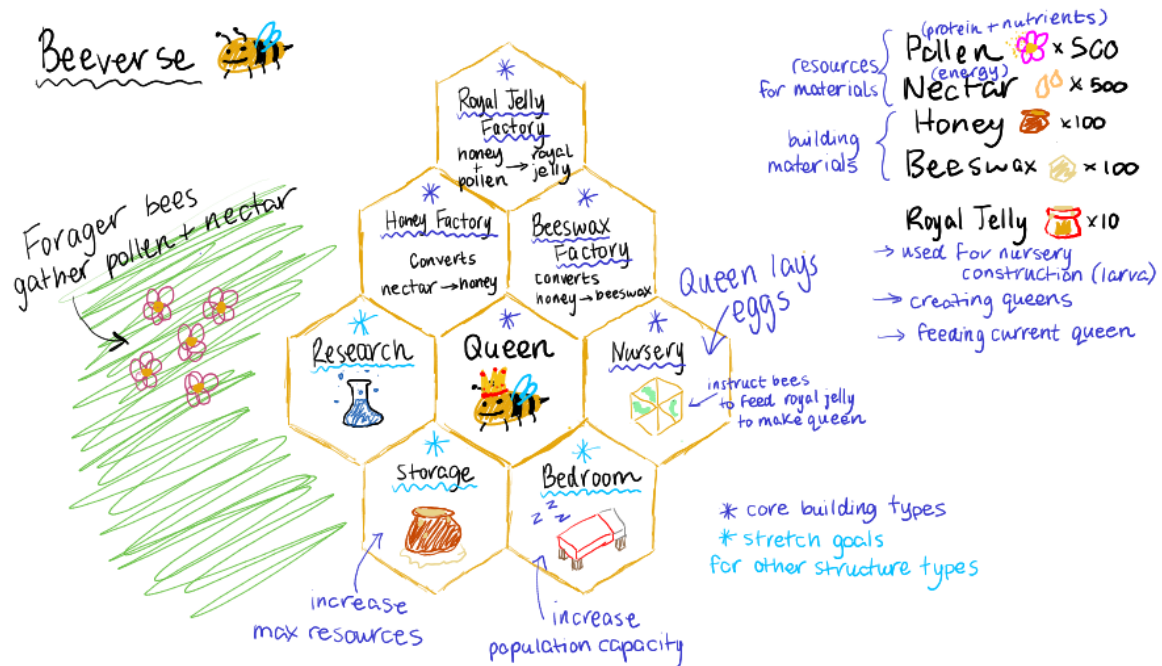 Beeverse
Royal Jelly
Factory
honey
+
pollen → royal
jelly
Honey Factory
Converts
nectar → honey
Beeswax
Factory
converts
honey → beeswax
Research
Queen
Nursery
Storage
Bedroom
z z z
Forager bees
gather pollen + nectar
Queen lays
eggs
instruct bees
to feed royal jelly
to make queen
increase
max resources
increase
population capacity
resources
for materials
(protein + nutrients)
Pollen x 500
(energy)
Nectar x 500
building
materials
Honey x100
Beeswax x 100
Royal Jelly x10
→ used for nursery
construction (larva)
→ creating queens
→ feeding current queen
* core building types
* stretch goals
for other structure types